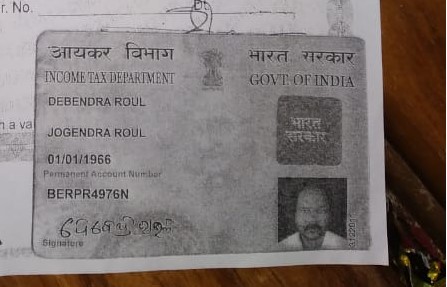 r. No.
आयकर विभाग
INCOME TAX DEPARTMENT
भारत सरकार
GOVT. OF INDIA
DEBENDRA ROUL
JOGENDRA ROUL
h a va
भारत
सरकार
01/01/1966
Permanent Account Number
BERPR4976N
Signature